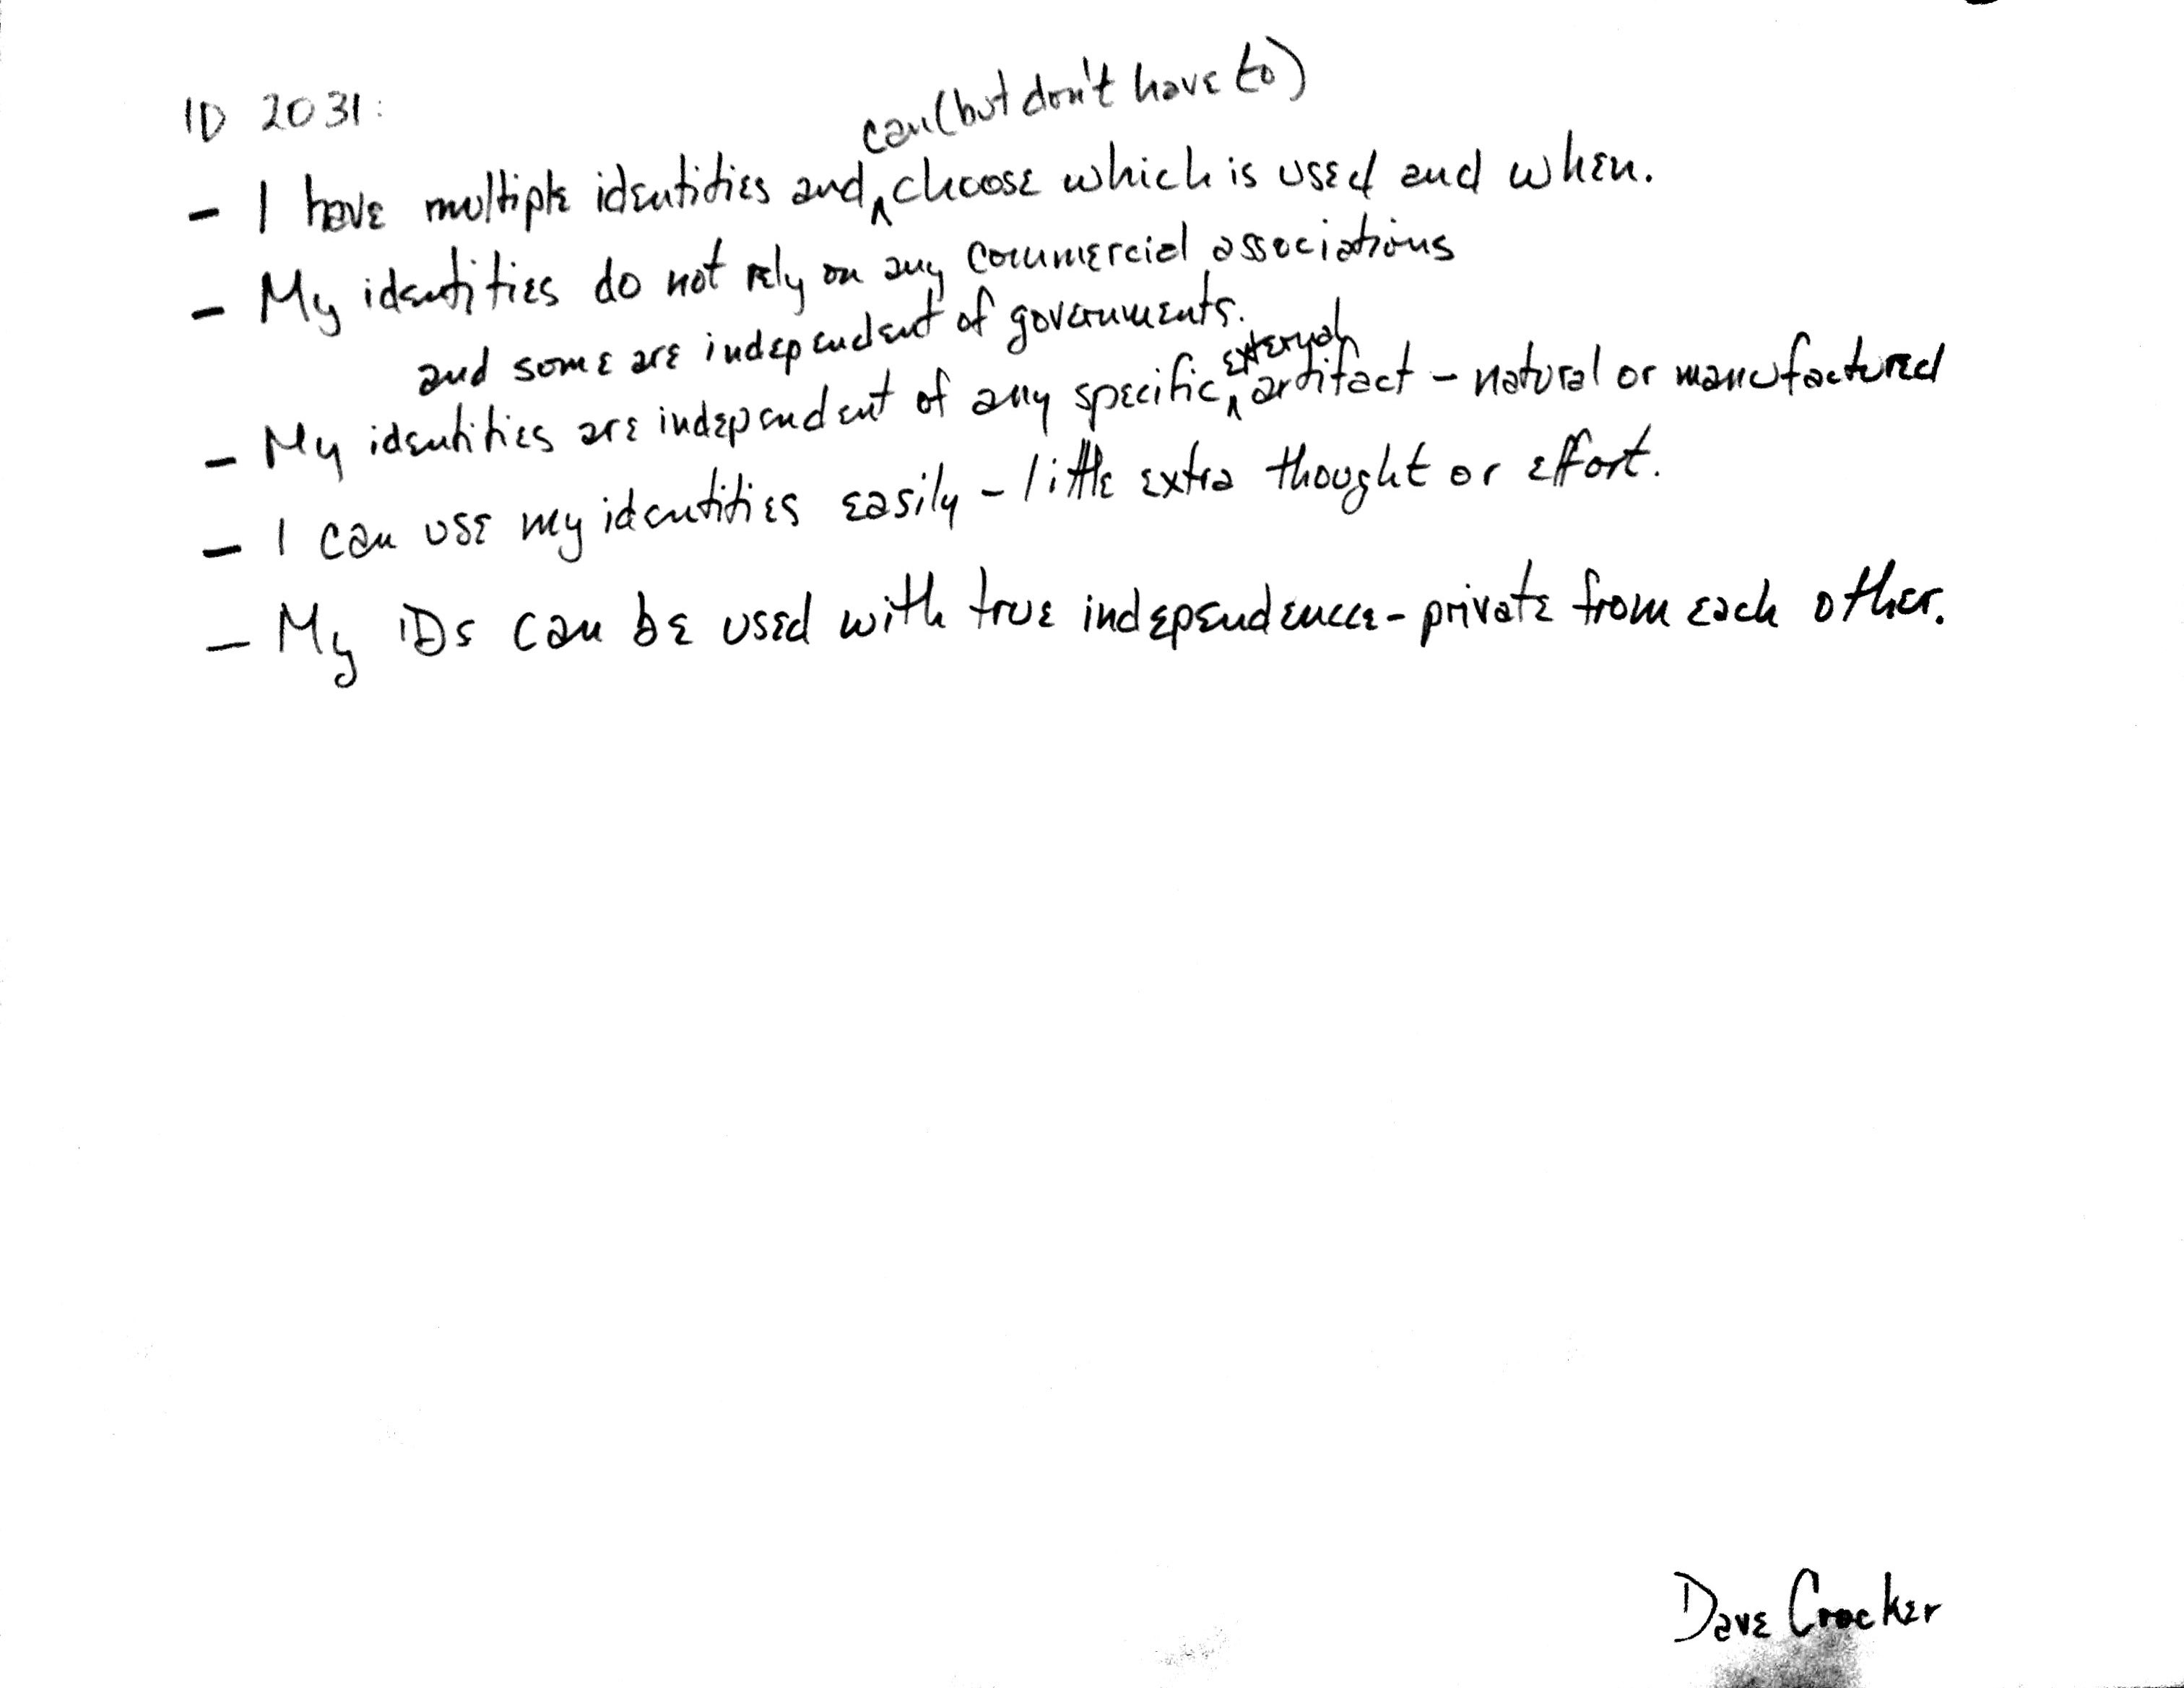 ID 2031:
can (but don't have to)
- I have multiple identities and ^ choose which is used and when.
- My identities do not rely on any commercial associations
and some are independent of governments.
external
- My identities are independent of any specific ^ artifact - natural or manufactured
- I can use my identities easily - little extra thought or effort.
- My IDs can be used with true independence - private from each other.
Dave Crocker